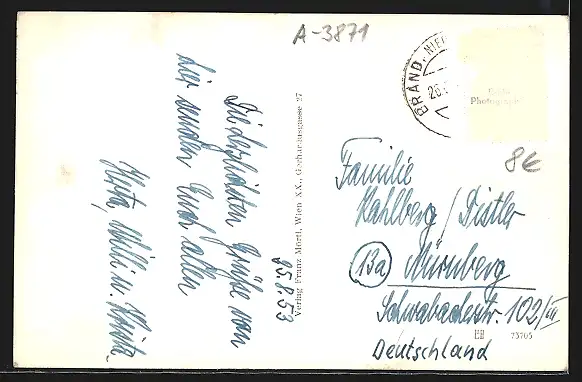 A-3871
BRAND, NIED
26.
Echte
Photographie
8€
Die herzlichsten Grüße von
hier senden Euch allen
Herta, Willi u. Christa.
25.8.53
Verlag Franz Mörtl, Wien XX., Gerhardusgasse 27
Familie
Kahlberg / Distler
13a Nürnberg
Schwabacherstr. 102/III
Deutschland
73705